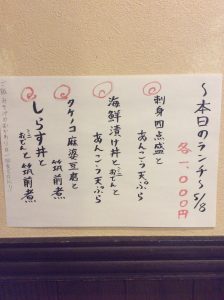 ～本日のランチ～ 5/8
各一,〇〇〇円
刺身四点盛と
あんこう天ぷら
海鮮漬け丼と
ミニおでんと
あんこう天ぷら
タケノコ麻婆豆腐と
筑前煮
しらす丼と
ミニおでんと
筑前煮